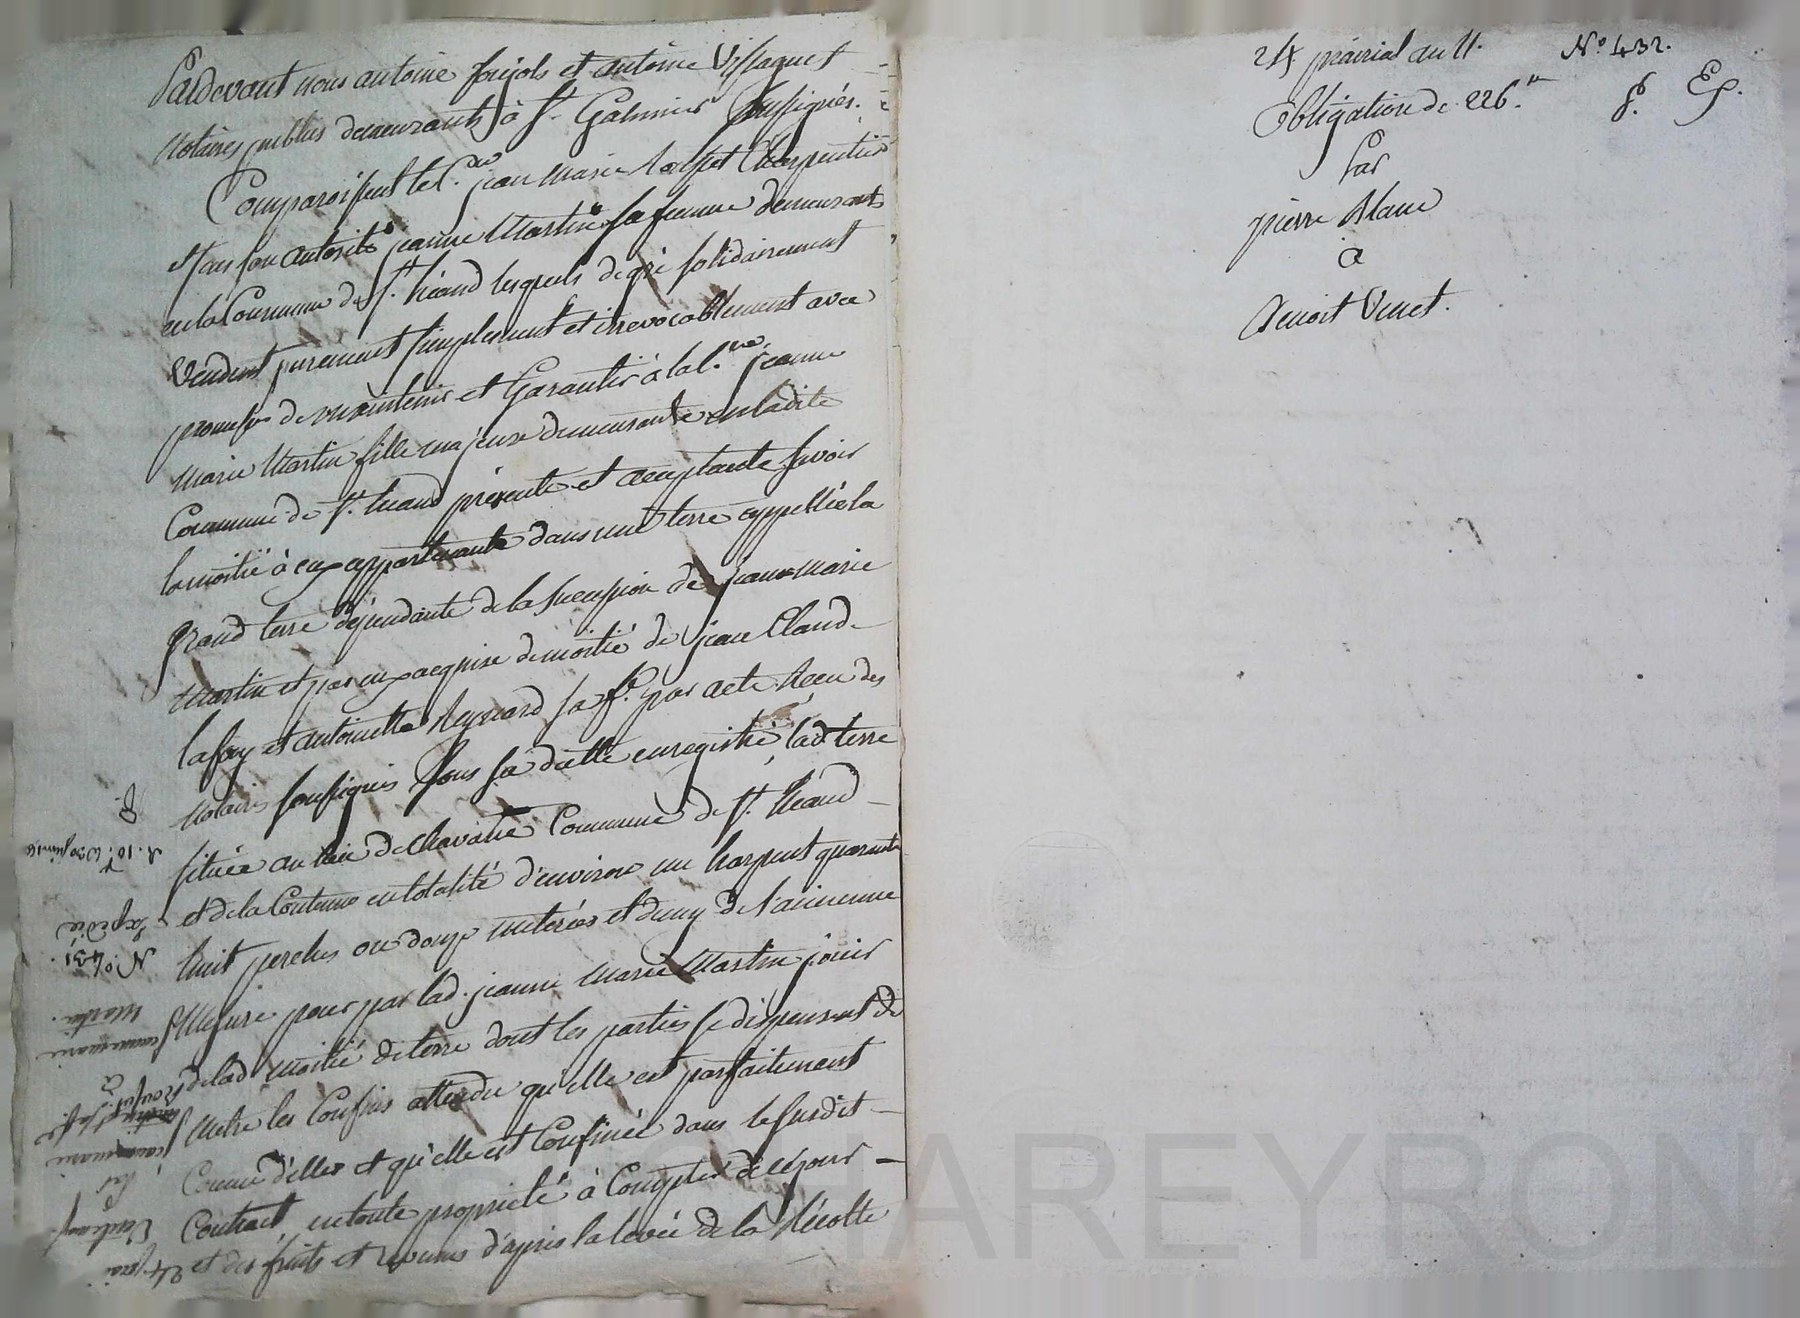 Pardevant nous antoine foujols et antoine Vissaguet
Notaires publics demeurants à St. Galmier soussignés.
Comparoissent le C.en jean marie
et sous son autorité jeanne Martin sa femme demeurants
en la Commune de St. héand lesquels de gré solidairement
Vendent purement simplement et irrevocablement avec
promesse de maintenir et Garantir à la C.ne jeanne
marie Martin fille majeure demeurante en ladite
Commune de St. héand présente et acceptante savoir
la moitié à eux appartenante dans une terre appellée la
grand terre dépendante de la succession de jean marie
Martin et par eux acquise de moitié de jean Claud
lafay et antoinette Reynard sa f.e par acte Reçu des
Notaires soussignés sous sa datte enregistré, lad. terre
située au lieu de Commune de St. héand
et de la Contenue en totalité d'environ un harpent quarante
huit perches ou douze meterées et demy de l'ancienne
Mesure pour par lad. jeanne marie Martin jouir
de lad. moitié de terre dont les parties se dispensent de
Mettre les Confins attendu qu'elle est parfaitement
Connue d'elles et qu'elle est Confinée dans le susdit
Contrat, en toute propriété à Compter de ce jour
et des fruits et revenus d'après la levée de la Récolte
24
Vente
par
à
jeanne marie
Martin.
N.o 431.
Expédié
24 prairial an 11.
N.o 432.
Obligation de 226.
Ex.
Par
pierre Blanc
à
Benoit Venet.
CHAREYRON